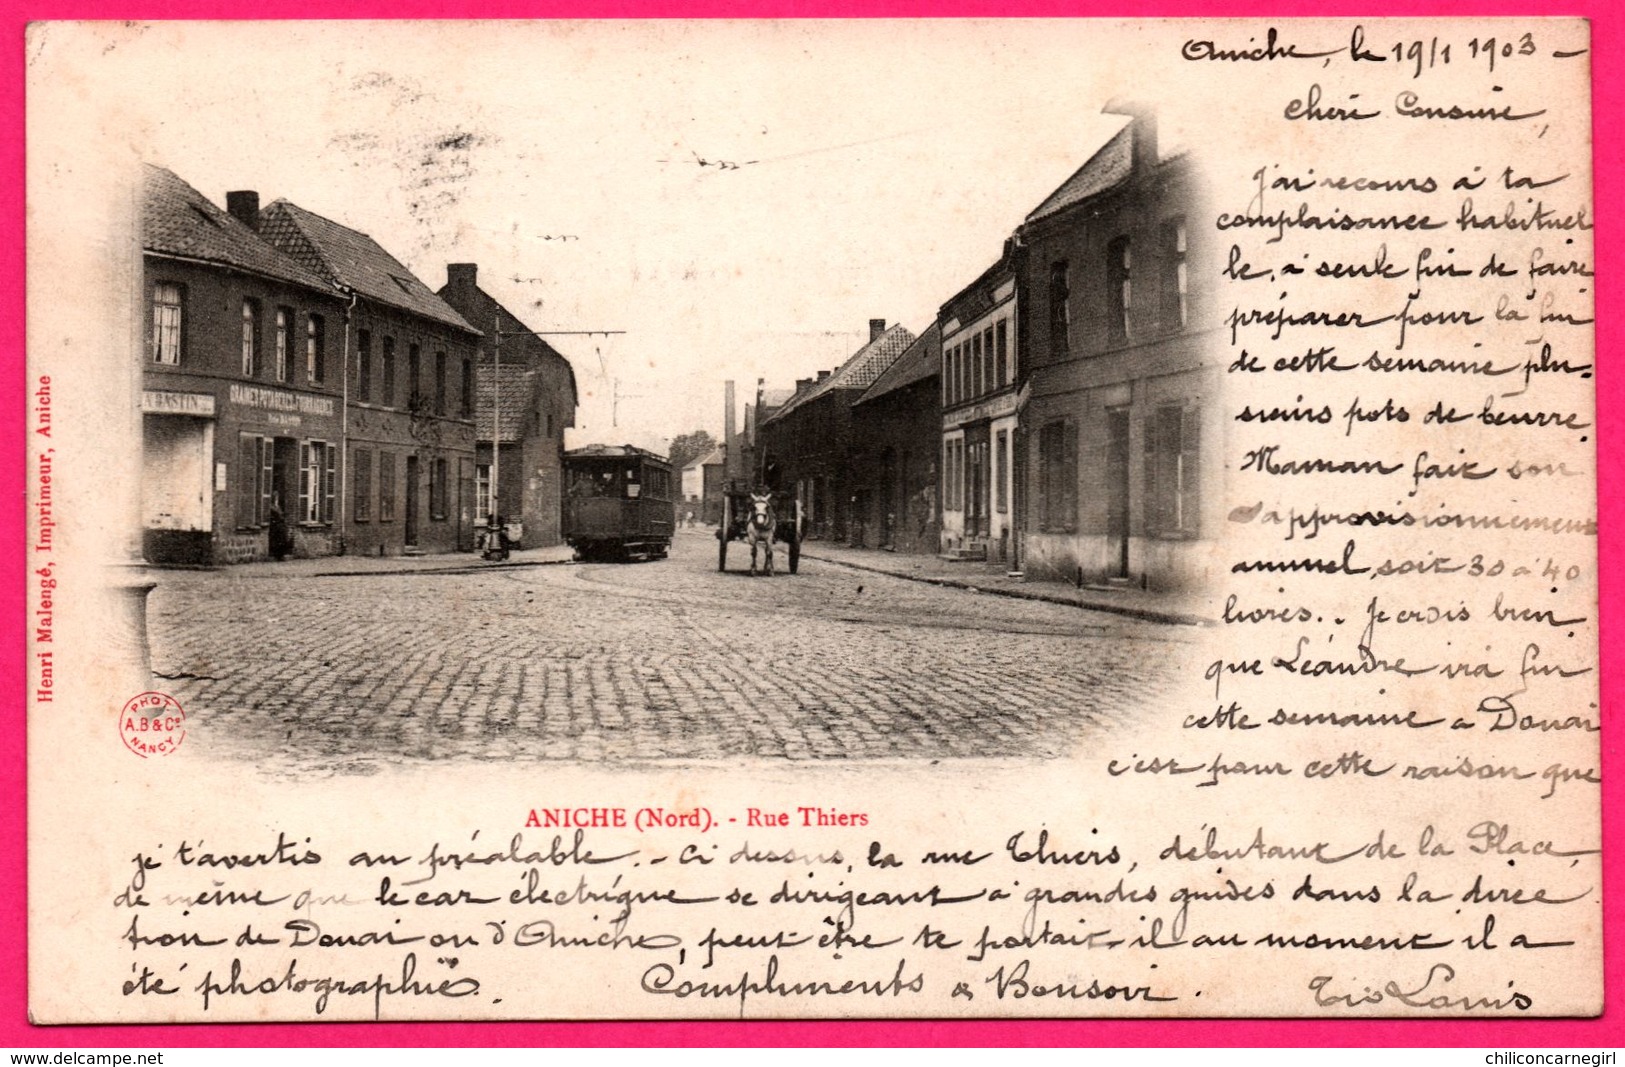 Aniche, le 19/1 1903 -
Cheri Cousine,
J'ai recours à ta
complaisance habituel
le, à seule fin de faire
préparer pour la fin
de cette semaine plu-
sieurs pots de beurre.
Maman fait son
approvisionnement
annuel, soit 30 à 40
livres.. Je crois bien
que Léandre ira fin
cette semaine à Douai
c'est pour cette raison que
ANICHE (Nord). - Rue Thiers
je t'avertis au préalable. - Ci dessus, la rue Thiers, débutant de la Place,
de même que le car électrique se dirigeant à grandes guides dans la direc
tion de Douai ou d'Aniche, peut être te portait-il au moment il a
été photographié. Compliments & Bonsoir. Louis
Henri Malengé, Imprimeur, Aniche
PHOT.
A.B & Cie
NANCY
GRAINES POTAGERES & FOURRAGERES
BASTIN
delcampe.net
chiliconcarnegirl